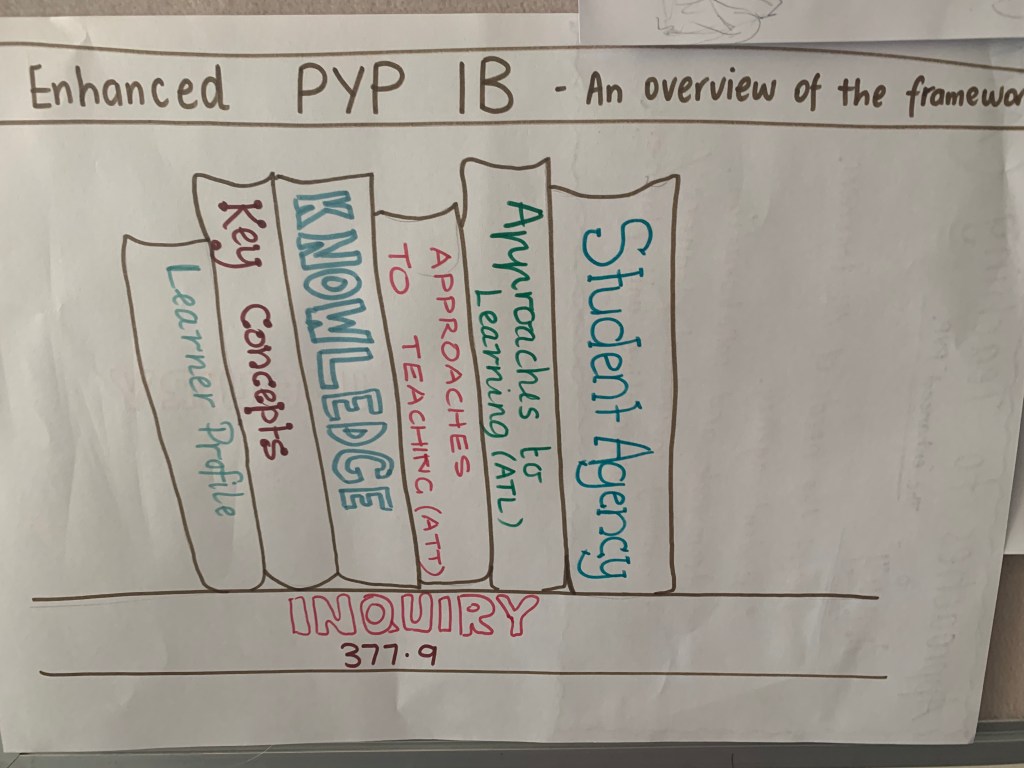 Enhanced PYP IB - An overview of the framewor
Learner Profile
Key Concepts
KNOWLEDGE
APPROACHES
TO TEACHING (ATT)
Approaches to
Learning (ATL)
Student Agency
INQUIRY
377.9